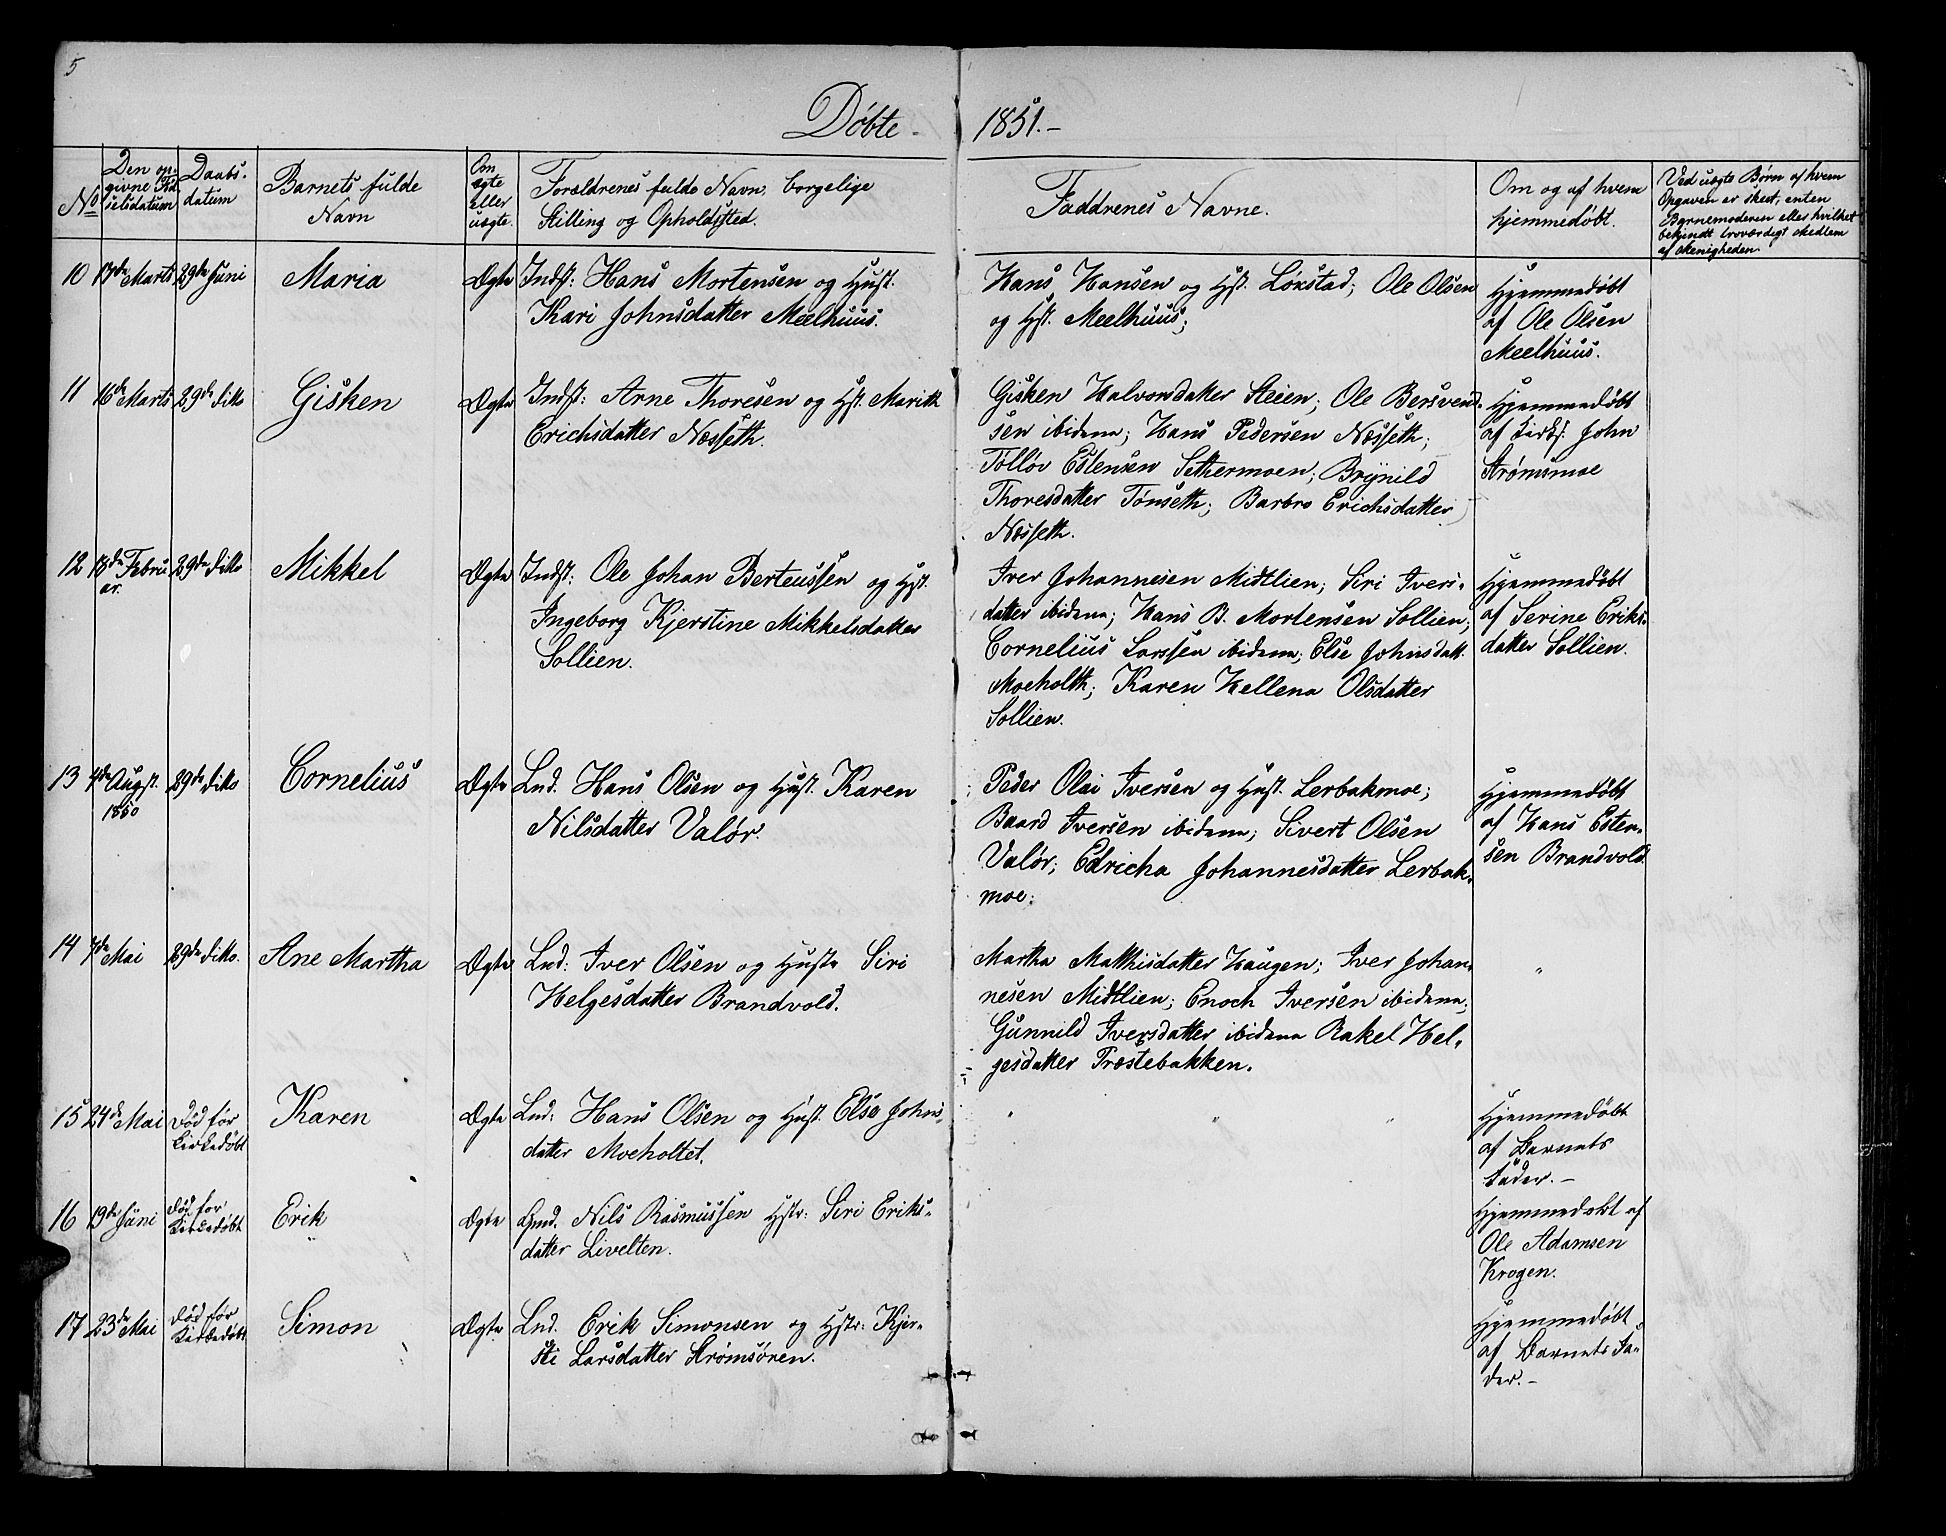 5
Døbte 1851.-
No
Den op-
givne Fød
selsdatum
Daabs-
datum
Barnets fulde
Navn
Om
ægte
eller
uægte.
Forældrenes fulde Navn, borgelige
Stilling og Opholdssted.
Faddrenes Navne.
Om og af hvem
hjemmedøbt.
Ved uægte Børn af hvem
Opgaven er skeet, enten
Barnemoderen eller hvilket
bekjendt troværdigt Medlem
af Menigheden.
10 17de Marts 29de Juni Maria Ægte Indst: Hans Mortensen og Hust.
Kari Johnsdatter Meelhuus.
Hans Hansen og Hst. Løkstad; Ole Olsen
og Hst. Meelhuus;
Hjemmedøbt
af Ole Olsen
Meelhuus.
11 16de Marts 29de Ditto Gisken Ægte Indst: Arne Thoresen og Hst. Maritt
Erichsdatter Næsseth.
Gisken Halvorsdatter Steien; Ole Bersvend-
sen ibidem; Hans Pedersen Næsseth;
Tolløv Estensen Sethermoen; Brynild
Thoresdatter Tønseth; Barbro Erichsdatter
Næsseth.
Hjemmedøbt
af Kirks. John
Strømsmoe
12 18de Febru
ar. 29de Ditto Mikkel Ægte Indst: Ole Johan Berteussen og Hst.
Ingeborg Kjerstine Mikkelsdatter
Sollien.
Iver Johannesen Midtlien; Siri Ivers-
datter ibidem; Hans B. Mortensen Sollien;
Cornelius Larssen ibidem; Else Johnsdatt.
Moeholtt; Karen Hellena Olsdatter
Sollien.
Hjemmedøbt
af Serine Eriks-
datter Sollien.
13 4de Augst.
1850 29de Ditto Cornelius Ægte Lnd. Hans Olsen og Hust. Karen
Nilsdatter Valør.
Peder Olai Iversen og Hust. Lerbakmoe;
Baard Iversen ibidem; Sivert Olsen
Valør; Edricha Johannesdatter Lerbak-
moe.
Hjemmedøbt
af Hans Esten-
sen Brandvold
14 7de Mai 29de Ditto. Ane Martha Ægte Lnd: Iver Olsen og Hustr Siri
Helgesdatter Brandvold.
Martha Matthisdatter Haugen; Iver Johan-
nesen Midtlien; Enoch Iversen ibidem;
Gunnild Iversdatter ibidem Rakel Hel-
gesdatter Præstebakken.
"
15 24de Mai Død før
Kirkedøbt Karen Ægte Lnd: Hans Olsen og Hust. Else Johns-
datter Moeholtet.
" " "
Hjemmedøbt
af Barnets
Fader.-
16 19de Juni Død før
Kirkedøbt Erik Ægte Gmd. Nils Rasmussen Hstr: Siri Eriks-
datter Livelten.
Hjemmedøbt af
Ole Adamsen
Krogen.
17 23de Mai Død før
Kirkedøbt Simon Ægte Lnd. Erik Simonsen og Hstr: Kjer-
sti Larsdatter Strømsøren.
Hjemmedøbt
af Barnets Fa-
der.-